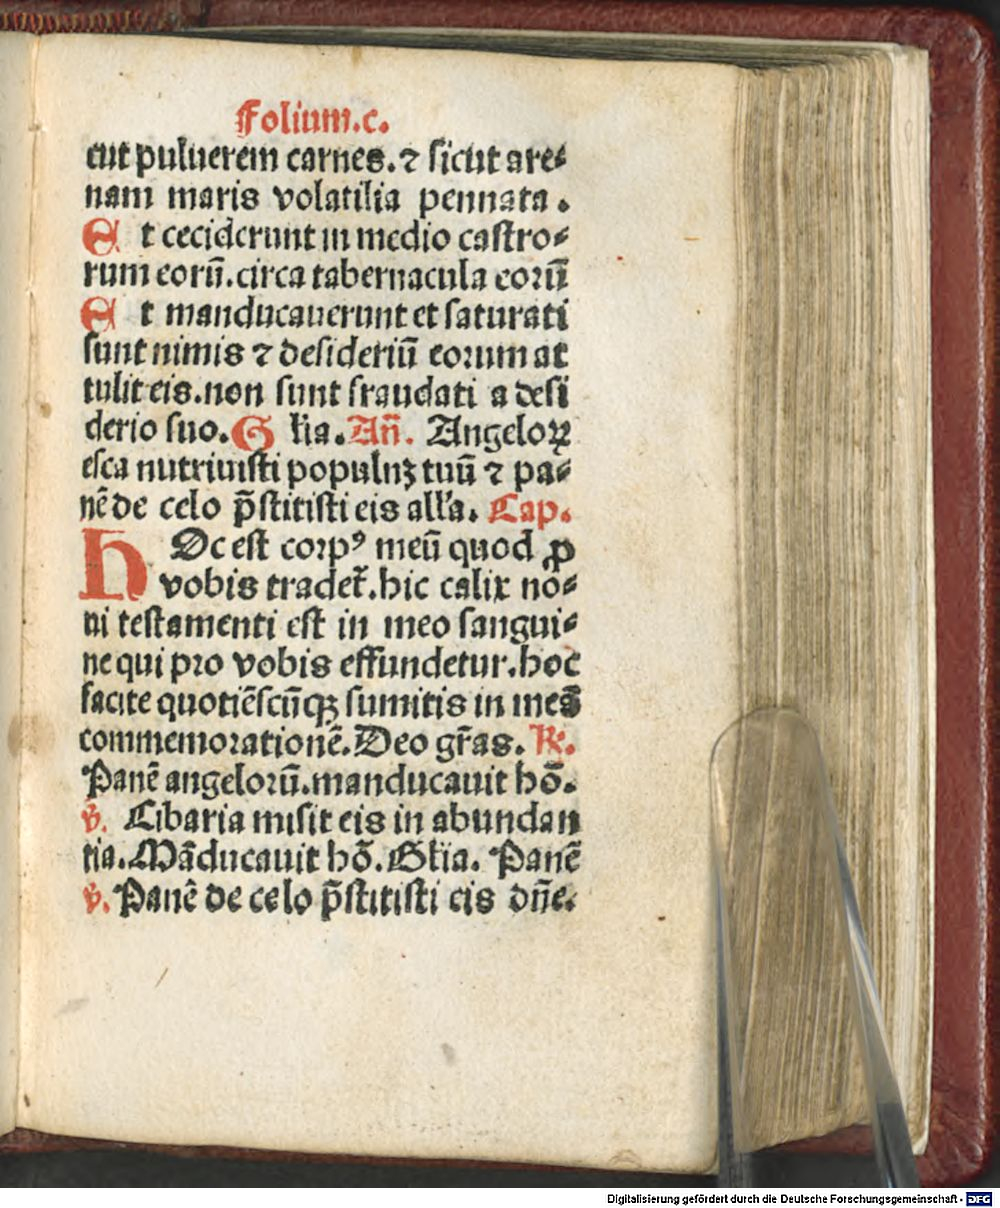 Folium.c.
cut puluerem carnes.⁊ sicut are⸗
nam maris volatilia pennata.
E t ceciderunt in medio castro⸗
rum eorū.circa tabernacula eorū
E t manducauerunt et saturati
sunt nimis ⁊ desideriū eorum at
tulit eis.non sunt fraudati a desi
derio suo.G łia.Añ. Angeloꝝ
esca nutriuisti populuꝫ tuū ⁊ pa⸗
nē de celo p̄stitisti eis alła. Cap.
HOc est corpꝰ meū quod ꝓ
vobis tradet̄.hic calix no⸗
ui testamenti est in meo sangui⸗
ne qui pro vobis effundetur.hoc
facite quotiēscūqꝫ sumitis in meā
commemorationē.Deo gr̄as. R̄.
Panē angelorū.manducauit hō.
v̄. Cibaria misit eis in abundan
tia.Māducauit hō.Głia. Panē
v̄.Panē de celo p̄stitisti eis dn̄e.
Digitalisierung gefördert durch die Deutsche Forschungsgemeinschaft - DFG